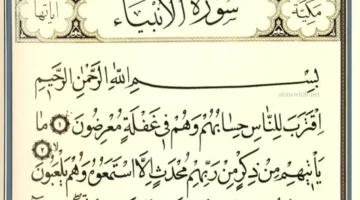 مكية سورة الأنبياء آياتها
بِسْمِ اللَّهِ الرَّحْمَٰنِ الرَّحِيمِ
اقْتَرَبَ لِلنَّاسِ حِسَابُهُمْ وَهُمْ فِي غَفْلَةٍ مُعْرِضُونَ ١ مَا
يَأْتِيهِمْ مِنْ ذِكْرٍ مِنْ رَبِّهِمْ مُحْدَثٍ إِلَّا اسْتَمَعُوهُ وَهُمْ يَلْعَبُونَ ٢